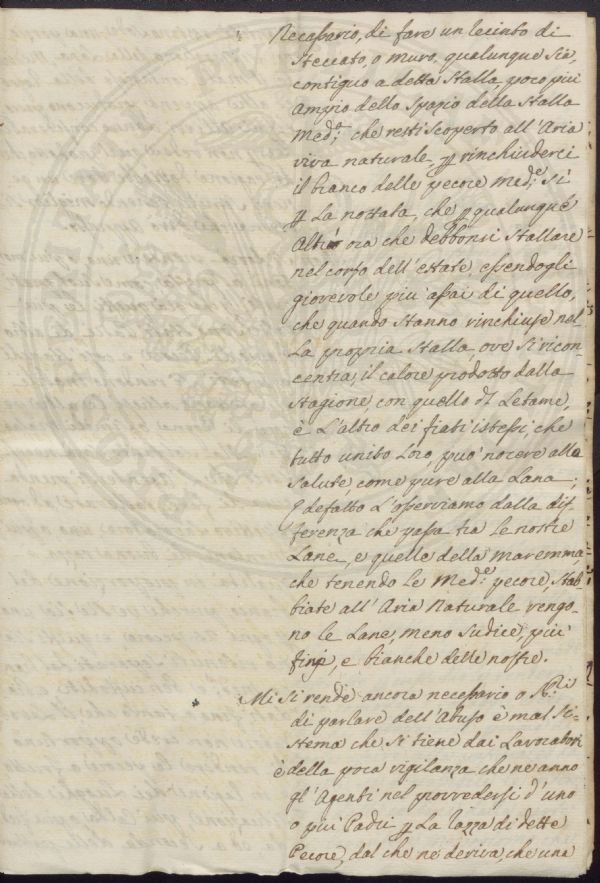 Necessario, di fare un recinto di
steccato, o muro, qualunque sia,
contiguo a detta stalla, poco più
Ampio dello Spazio della Stalla
Med.a che resti scoperto all'Aria
viva naturale p rinchiuderci
il bianco delle pecore Med.e sì
p La nottata, che p qualunque
Altra ora che debbonsi Stallare
nel corso dell'estate, essendogli
giovevole più assai di quello,
che quando Stanno rinchiuse nel
La propria Stalla, ove Si ricon:
centra, il calore prodotto dalla
Stagione, con quello di Letame,
è L'altro dei fiati istessi, che
tutto unito Loro, può nocere alla
Salute, come pure alla Lana;
E defatto L'osserviamo dalla dif
ferenza che passa tra le nostre
Lane, e quelle della Maremma,
che tenendo le Med.e pecore, stab
biate all'Aria Naturale vengo:
no le Lane, meno Sudice, più
fine, e bianche delle nostre.
Mi si rende ancora necessario o
di parlare dell'Abuso è mal Si:
stema che Si tiene dai Lavoratori
è della poca vigilanza che ne anno
gl'Agenti nel provvedersi d'uno
o più Padri p La razza di dette
Pecore, dal che ne deriva, che una